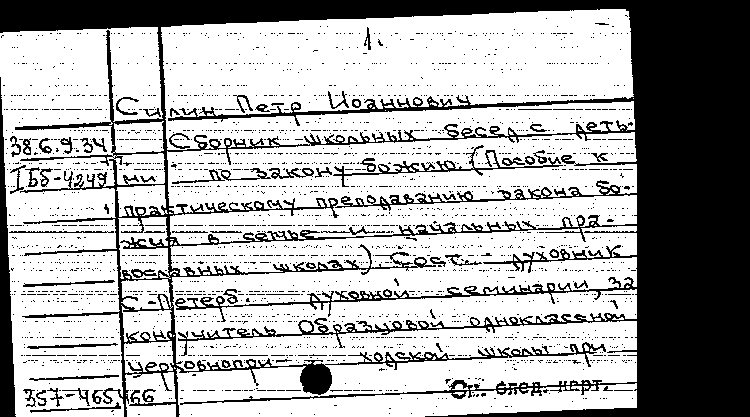 1.
Силин, Петр Иоаннович
38.6.9.34 Сборник школьных бесед с деть-
IББ-4249 ми по закону божию. (Пособие к
практическому преподаванию закона бо-
жия в семье и начальных пра-
вославных школах). Сост. - духовник
С.-Петерб. духовной семинарии, за
коноучитель Образцовой одноклассной
церковнопри- ходской школы при
357-465,466 См. след. карт.